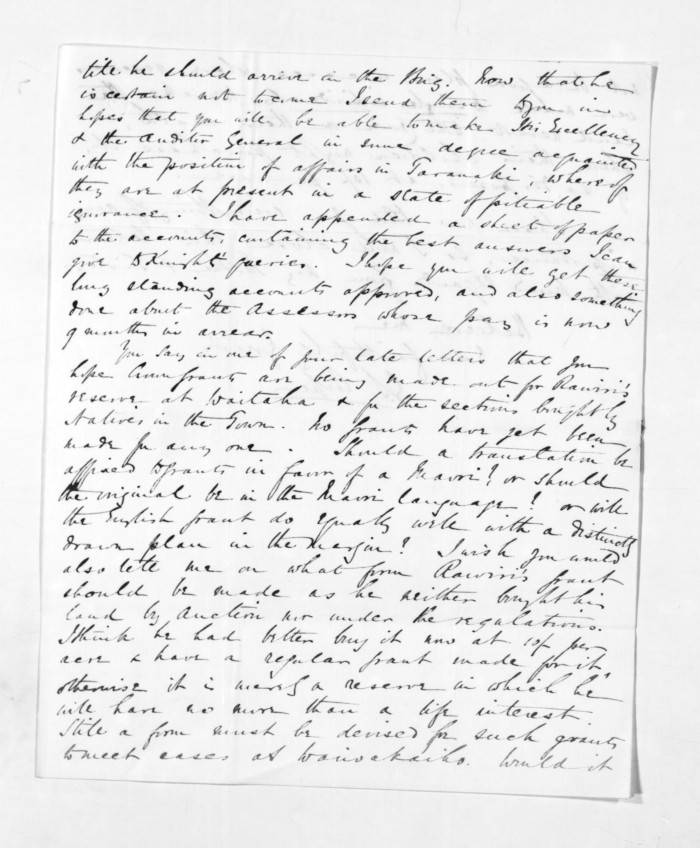 till he should arrive in the Brig. Now that he
is certain not to come I send them to you in
hopes that you will be able to make His Excellency
& the Auditor General in some degree acquainted
with the position of affairs in Taranaki, whereof
they are at present in a state of pitiable
ignorance. I have appended a sheet of paper
to the accounts, containing the best answers I can
give Dr Knight's queries. I hope you will get these
long standing accounts approved, and also something
done about the Assessors whose pay is now
9 months in arrear.
You say in one of your late letters that you
hope Crown grants are being made out for Rawiri's
reserve at Waitaha & for the sections bought by
Natives in the Town. No grants have yet been
made for any one. Should a translation be
affixed to grants in favor of a Maori? or should
the original be in the Maori language? or will
the English grant do equally well with a distinctly
drawn plan in the margin? I wish you would
also tell me on what form Rawiri's grant
should be made as he neither bought his
land by auction nor under the regulations.
I think he had better buy it now at 10/ per
acre & have a regular grant made for it
otherwise it is merely a reserve in which he
will have no more than a life interest.
Still a form must be devised for such grants
to meet cases at Waiwakaiho. Would it